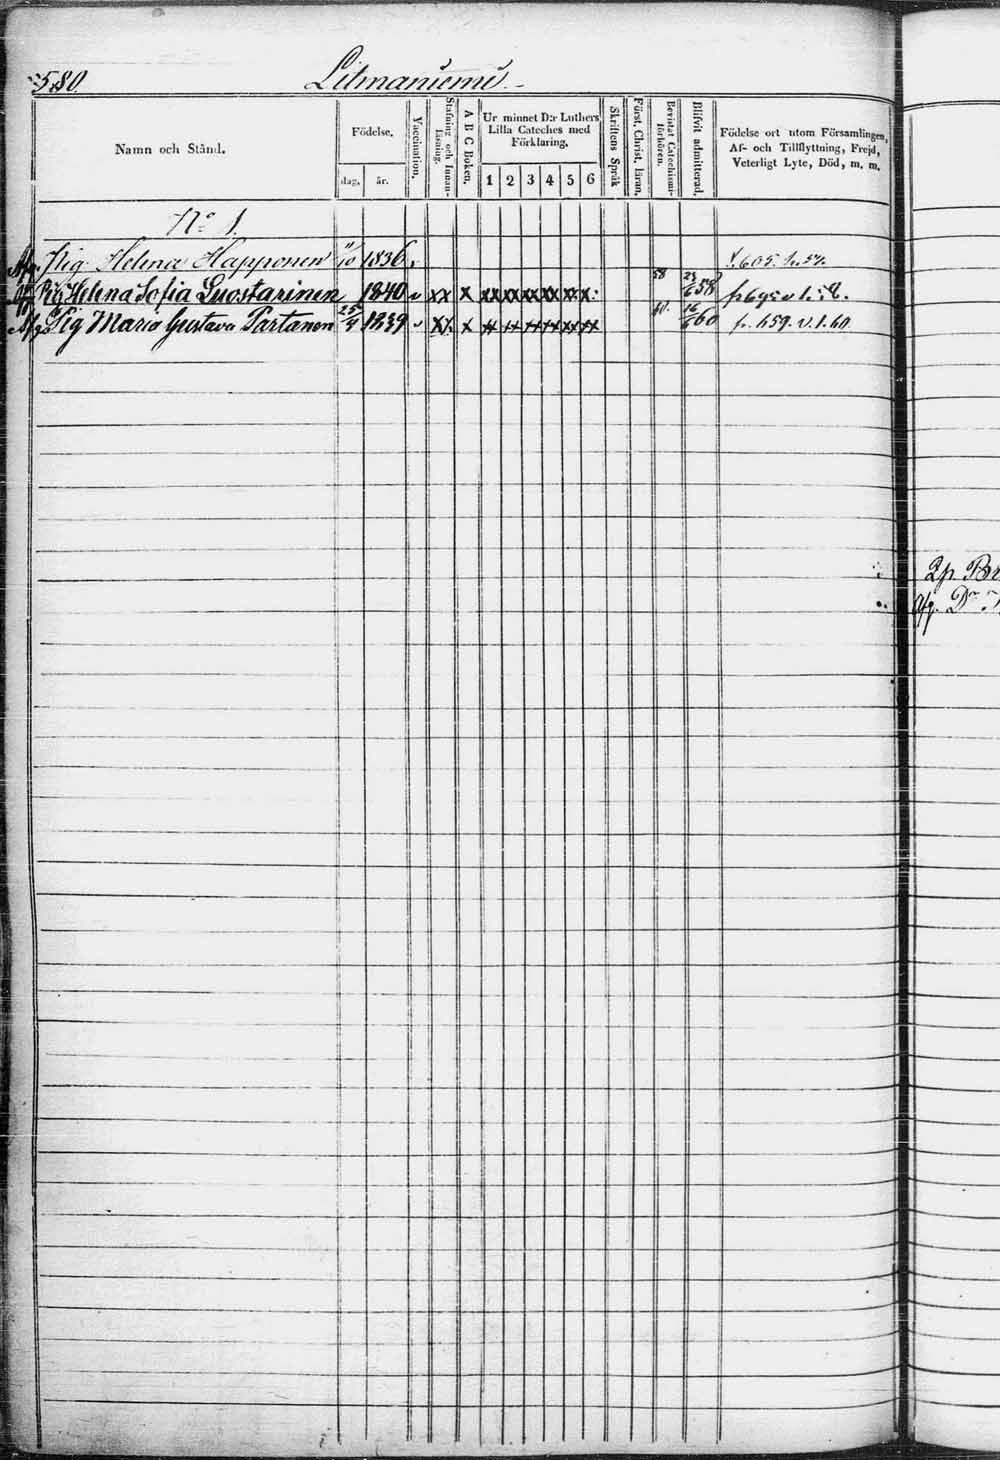 580. Litmaniemi
Namn och Stånd.
Födelse.
dag. år.
Vaccination.
Stafning och Innanläsning.
A B C Boken.
Ur minnet D:r Luthers
Lilla Cateches med
Förklaring.
1 2 3 4 5 6
Skriftens Språk
Först. Christ. läran.
Bevistat Catechismiförhören.
Blifvit admitterad.
Födelse ort utom Församlingen,
Af- och Tillflyttning, Frejd,
Veterligt Lyte, Död, m. m.
No 1.
Afg. Pig Helena Happonen 11/10 1836.
Afg. Pig Helena Sofia Luostarinen 1840 v xx x xx xx xx xx xx x. 58 23/6 58
Afg. Pig Maria Gustava Partanen 25/4 1839 v xx x xx xx xx xx xx xx 60. 16/6 60 fr. 659. v. 1. 60
Afg. Dr